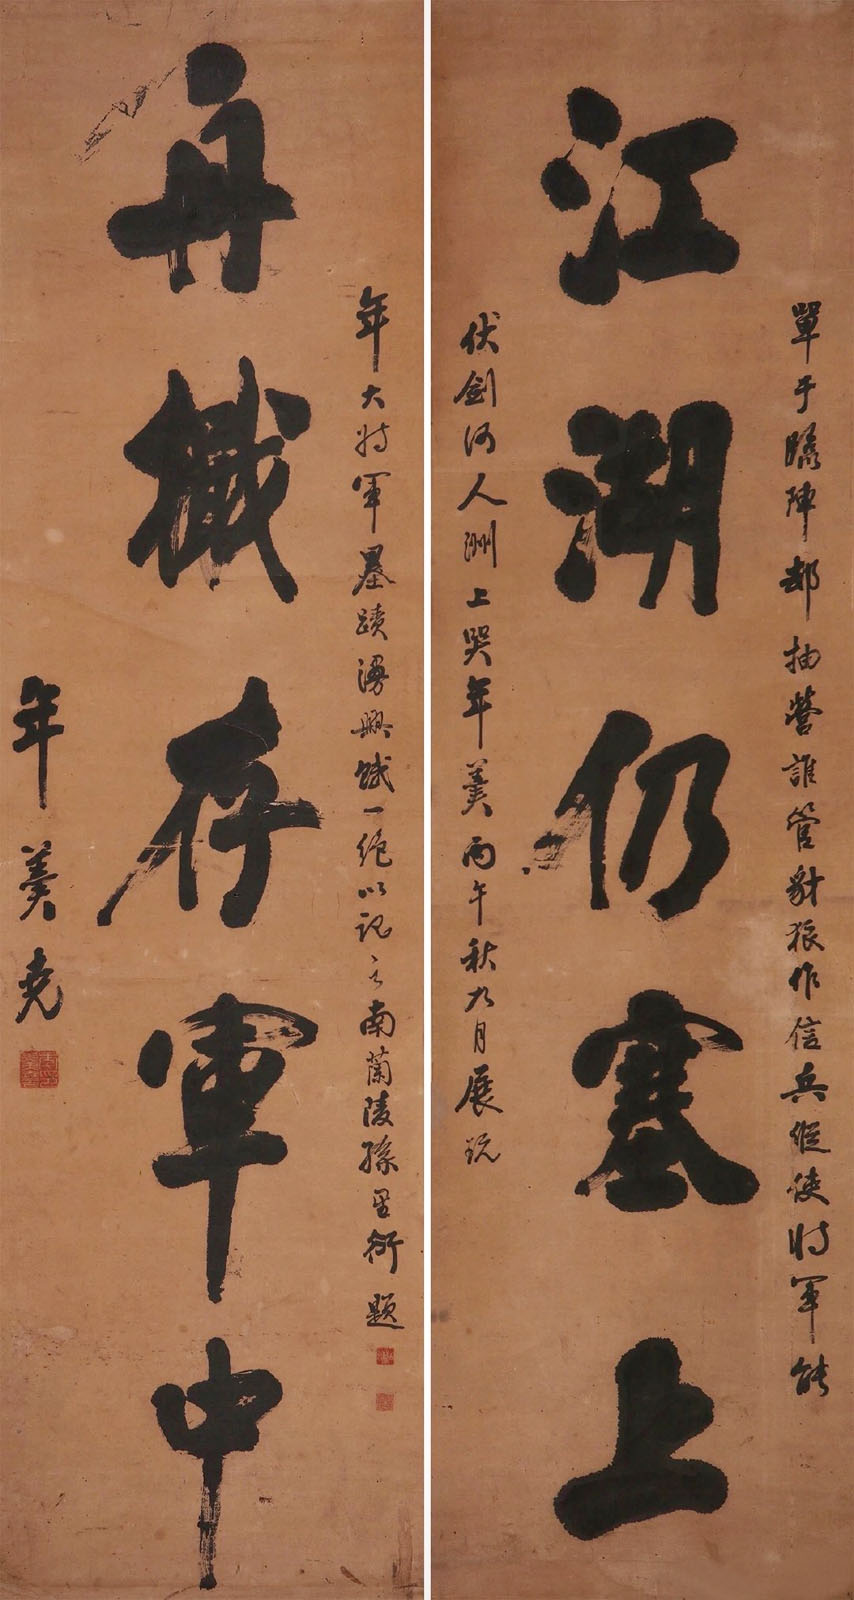 單于陣卻抽營誰管豺狼作信兵縱使將軍能
江湖仍塞上
伏劍何人上哭年羹丙午秋九月展玩
年大將軍墨蹟漫興賦一絕以記之南蘭陵孫星衍題
舟檝存軍中
年羹尭